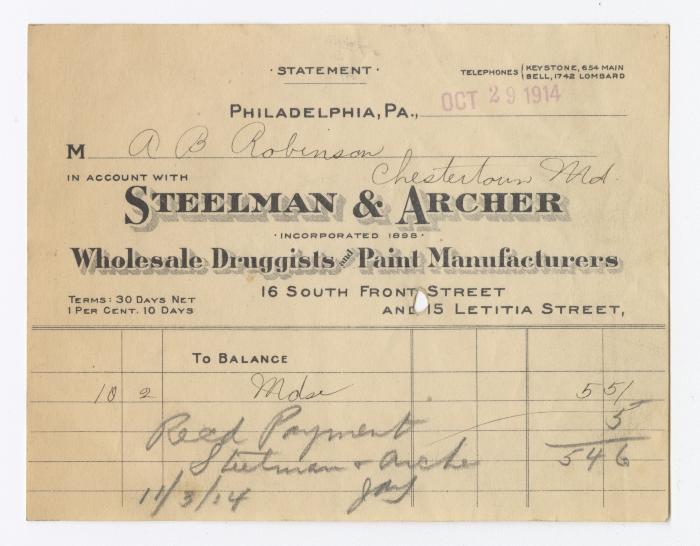 · STATEMENT ·
TELEPHONES { KEYSTONE, 654 MAIN
BELL, 1742 LOMBARD
PHILADELPHIA, PA., OCT 29 1914
M A B Robinson
IN ACCOUNT WITH Chestertown Md.
STEELMAN & ARCHER
· INCORPORATED 1898 ·
Wholesale Druggists and Paint Manufacturers
TERMS: 30 DAYS NET
1 PER CENT. 10 DAYS
16 SOUTH FRONT STREET
AND 15 LETITIA STREET,
TO BALANCE
10 2 Mdse 5 51
5
Recd Payment 5 46
Steelman & Archer
11/3/14